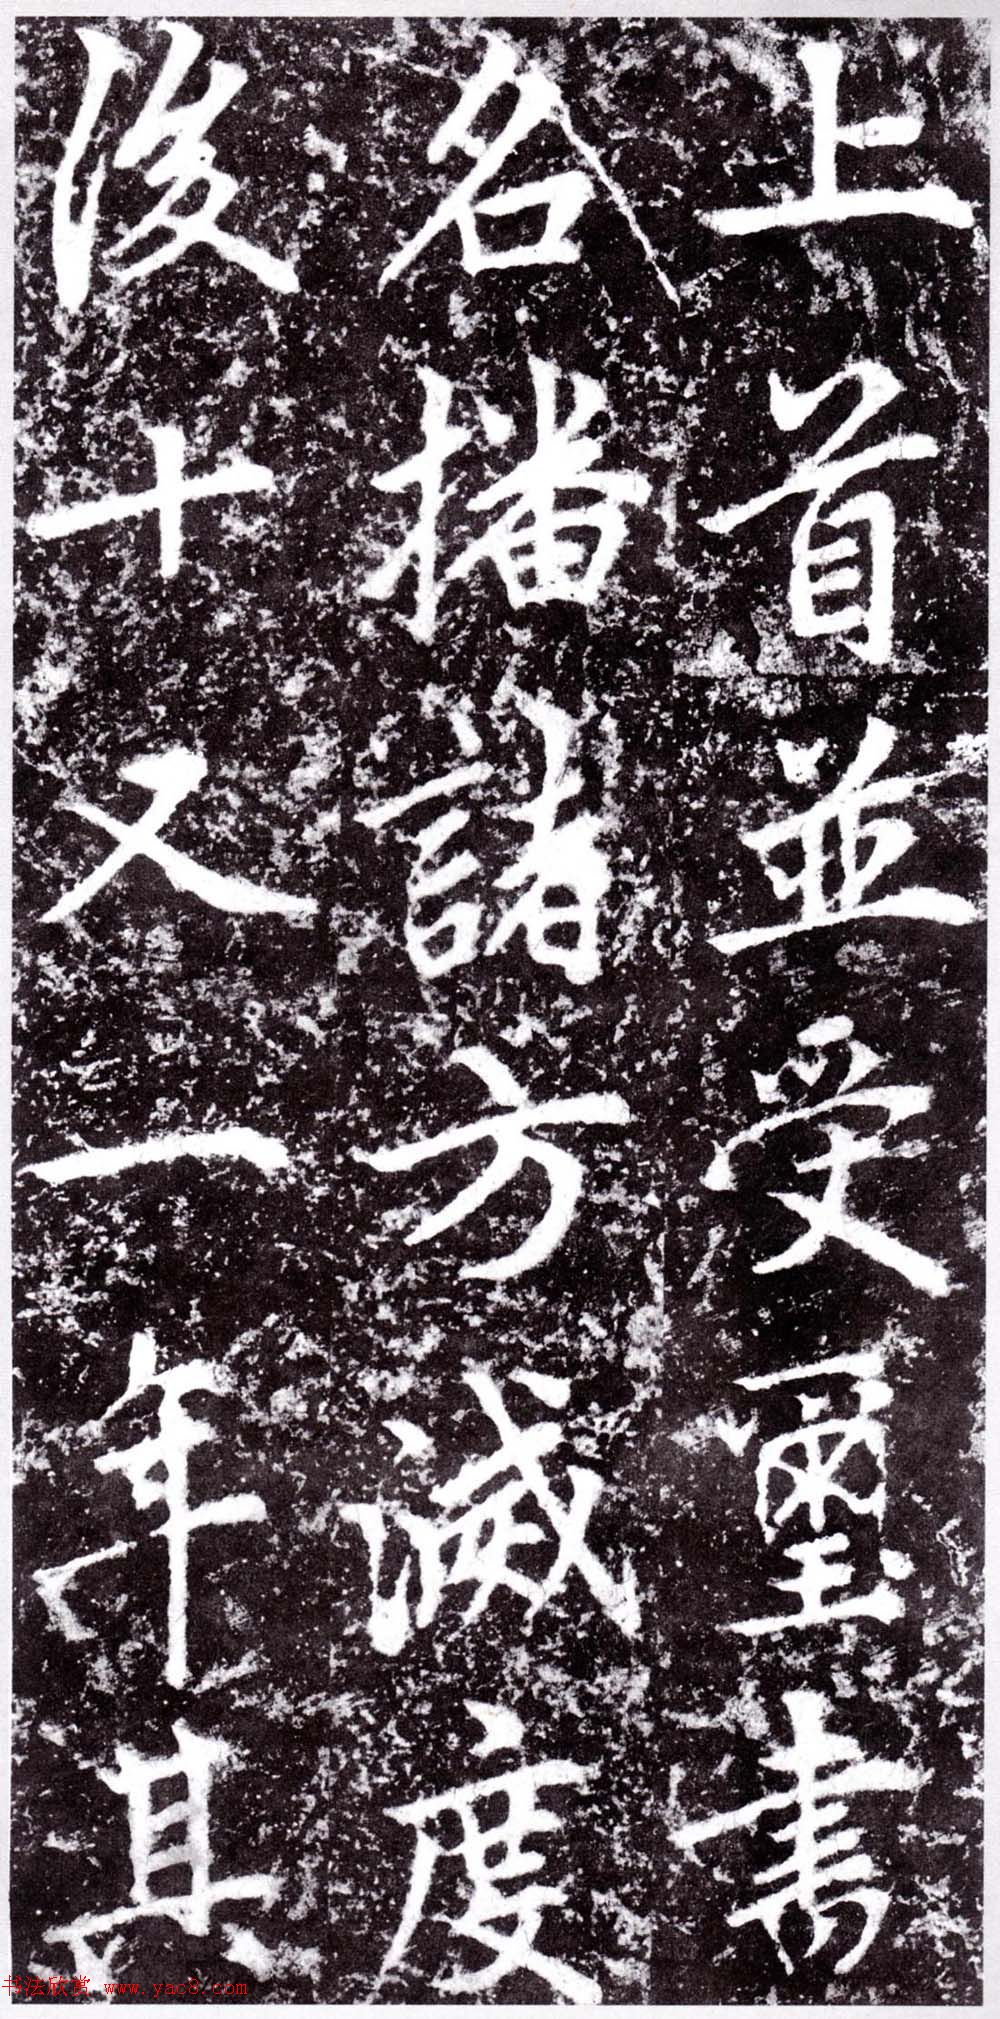 上首並受璽書
名播諸方滅度
後十又一年其
书法欣赏 www.yac8.com